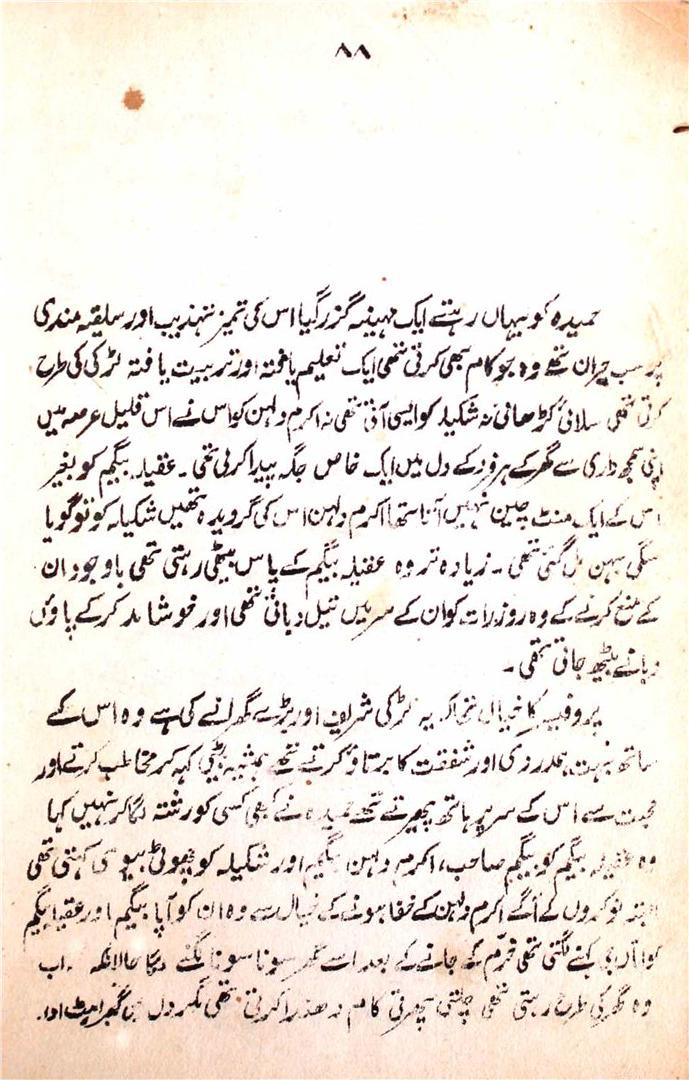 ۸۸
حمیدہ کو یہاں رہتے ایک مہینہ گزر گیا اس کی تمیز تہذیب اور سلیقہ مندی
پر سب حیران تھے وہ جو کام بھی کرتی تھی ایک تعلیم یافتہ اور تربیت یافتہ لڑکی کی طرح
کرتی تھی سلائی کڑھائی نہ شکیلہ کو ایسی آتی تھی نہ اکرم دلہن کو اس نے اس قلیل عرصہ میں
اپنی سمجھ داری سے گھر کے ہر فرد کے دل میں ایک خاص جگہ پیدا کر لی تھی۔ عقیلہ بیگم کو بغیر
اس کے ایک منٹ چین نہیں آتا تھا اکرم دلہن اس کی گرویدہ تھیں شکیلہ کو تو گویا
سگی بہن مل گئی تھی۔ زیادہ تر وہ عقیلہ بیگم کے پاس بیٹھی رہتی تھی باوجود ان
کے منع کرنے کے وہ روز رات کو ان کے سر میں تیل دباتی تھی اور خوشامد کر کے پاؤں
دبانے بیٹھ جاتی تھی۔
پروفیسر کا خیال تھا کہ یہ لڑکی شریف اور بڑے گھرانے کی ہے وہ اس کے
ساتھ بہت ہمدردی اور شفقت کا برتاؤ کرتے تھے ہمیشہ بیٹی کہہ کر مخاطب کرتے اور
محبت سے اس کے سر پر ہاتھ پھیرتے تھے حمیدہ نے کبھی کسی کو رشتہ لگا کر نہیں کہا
وہ عقیلہ بیگم کو بیگم صاحب، اکرم دلہن بیگم اور شکیلہ کو چھوٹی بیوی کہتی تھی
البتہ نوکروں کے آگے اکرم دلہن کے خفا ہونے کے خیال سے وہ ان کو آپا بیگم اور عقیلہ بیگم
کو اماں بی کہنے لگتی تھی خرم کے جانے کے بعد اسے گھر سونا سونا لگنے لگا حالانکہ اب
وہ گھر کی طرح رہتی تھی چلتی پھرتی کام دھندا کرتی تھی مگر دل میں گھبراہٹ اور